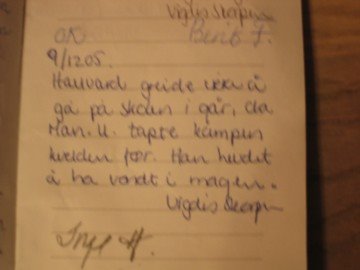 Vigdis Skarpn
OK! Berit F.
9/12 05.
Hallvard greide ikke å
gå på skolen i går, da
Man. U. tapte kampen
kvelden før. Han hevdet
å ha vondt i magen.
Vigdis Skarpn
Inge H